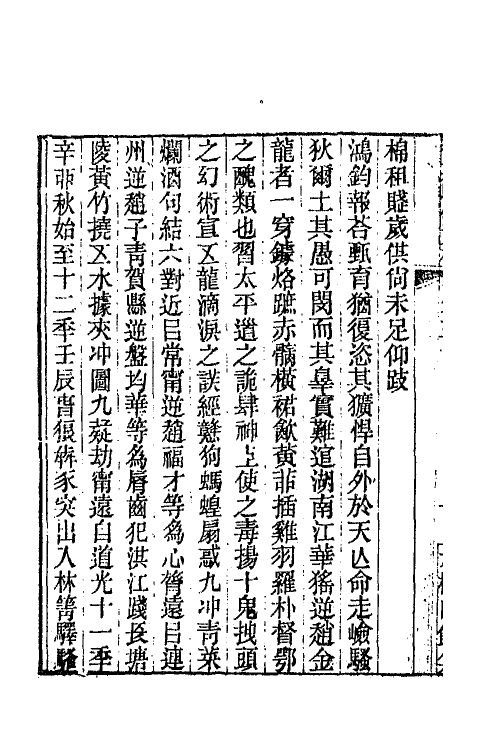 棉租賤歲供尙未足仰跂
鴻鈞報荅甄育猶復恣其獷悍自外於天亾命走嶮騷
狄爾土其愚可閔而其辠實難逭湖南江華猺逆趙金
龍者一穿鐻烙蹠赤髃橫裙歃黃非插雞羽羅朴督鄂
之醜類也習太平道之詭肆神上使之毒揚十鬼拽頭
之幻術宣㐅龍滴淚之誤經戇狗螞蝗扇惑九冲靑萊
爛酒句結六對近㠯常甯逆趙福才等為心膂遠㠯連
州逆趙子靑賀縣逆盤均華等為脣齒犯洪江踐長塘
陵黃竹撓㐅水據夾冲圖九疑劫甯遠自道光十一季
辛丣秋始至十二季壬辰旾猥犇豕突出入林箐驛騷